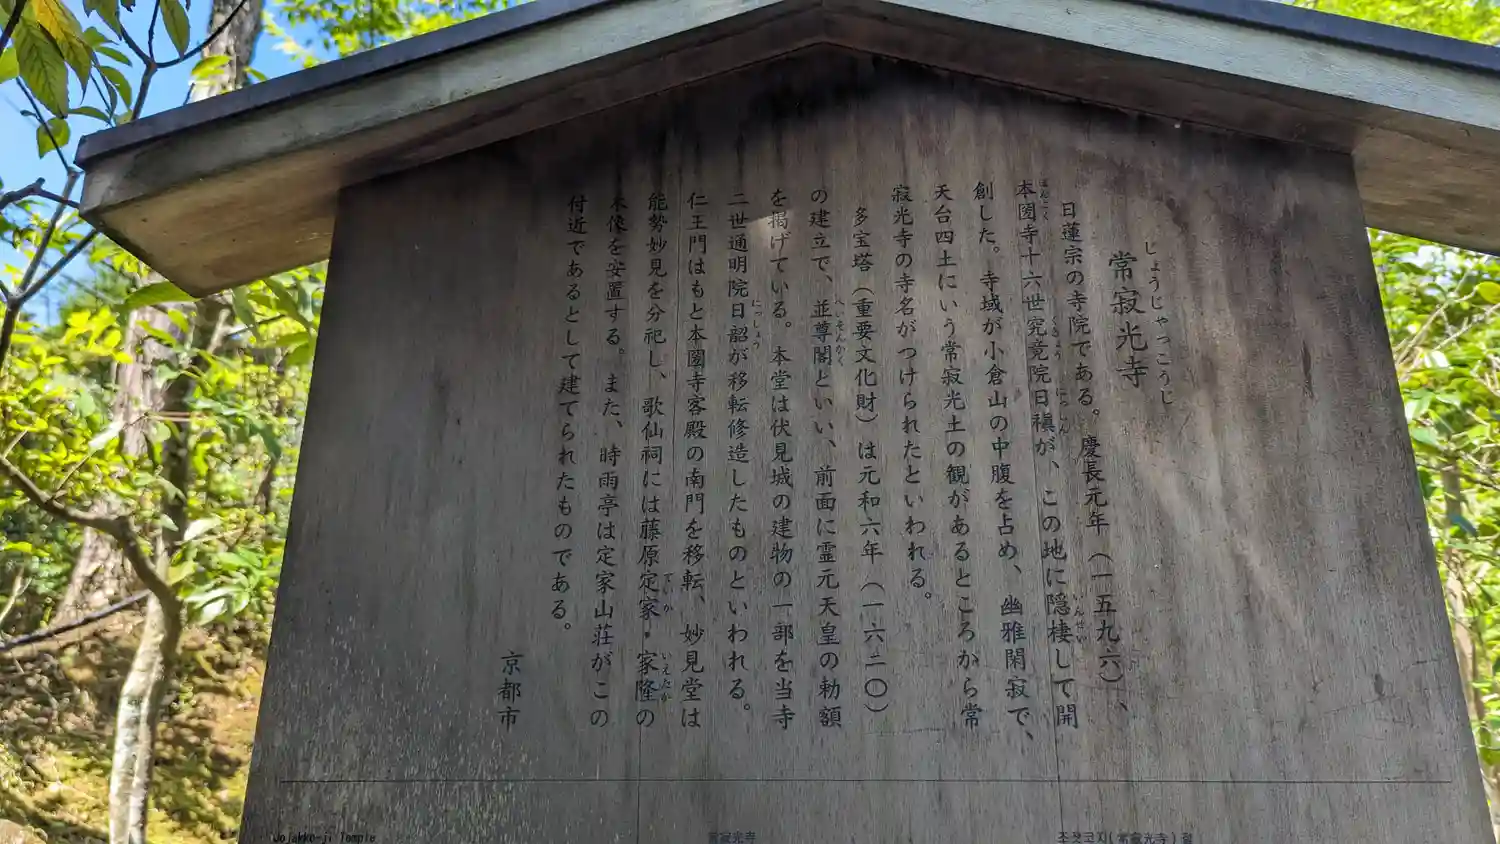 常寂光寺
じょうじゃっこうじ
日蓮宗の寺院である。慶長元年(一五九六)、
本圀寺十六世究竟院日禛が、この地に隠棲して開
創した。寺域が小倉山の中腹を占め、幽雅閑寂で、
天台四土にいう常寂光土の観があるところから常
寂光寺の寺名がつけられたといわれる。
多宝塔(重要文化財)は元和六年(一六二〇)
の建立で、並尊閣といい、前面に霊元天皇の勅額
を掲げている。本堂は伏見城の建物の一部を当寺
二世通明院日韶が移転修造したものといわれる。
仁王門はもと本圀寺客殿の南門を移転、妙見堂は
能勢妙見を分祀し、歌仙祠には藤原定家・家隆の
木像を安置する。また、時雨亭は定家山荘がこの
付近であるとして建てられたものである。
京都市
Jojakko-ji Temple
常寂光寺
조잣코지(常寂光寺) 절